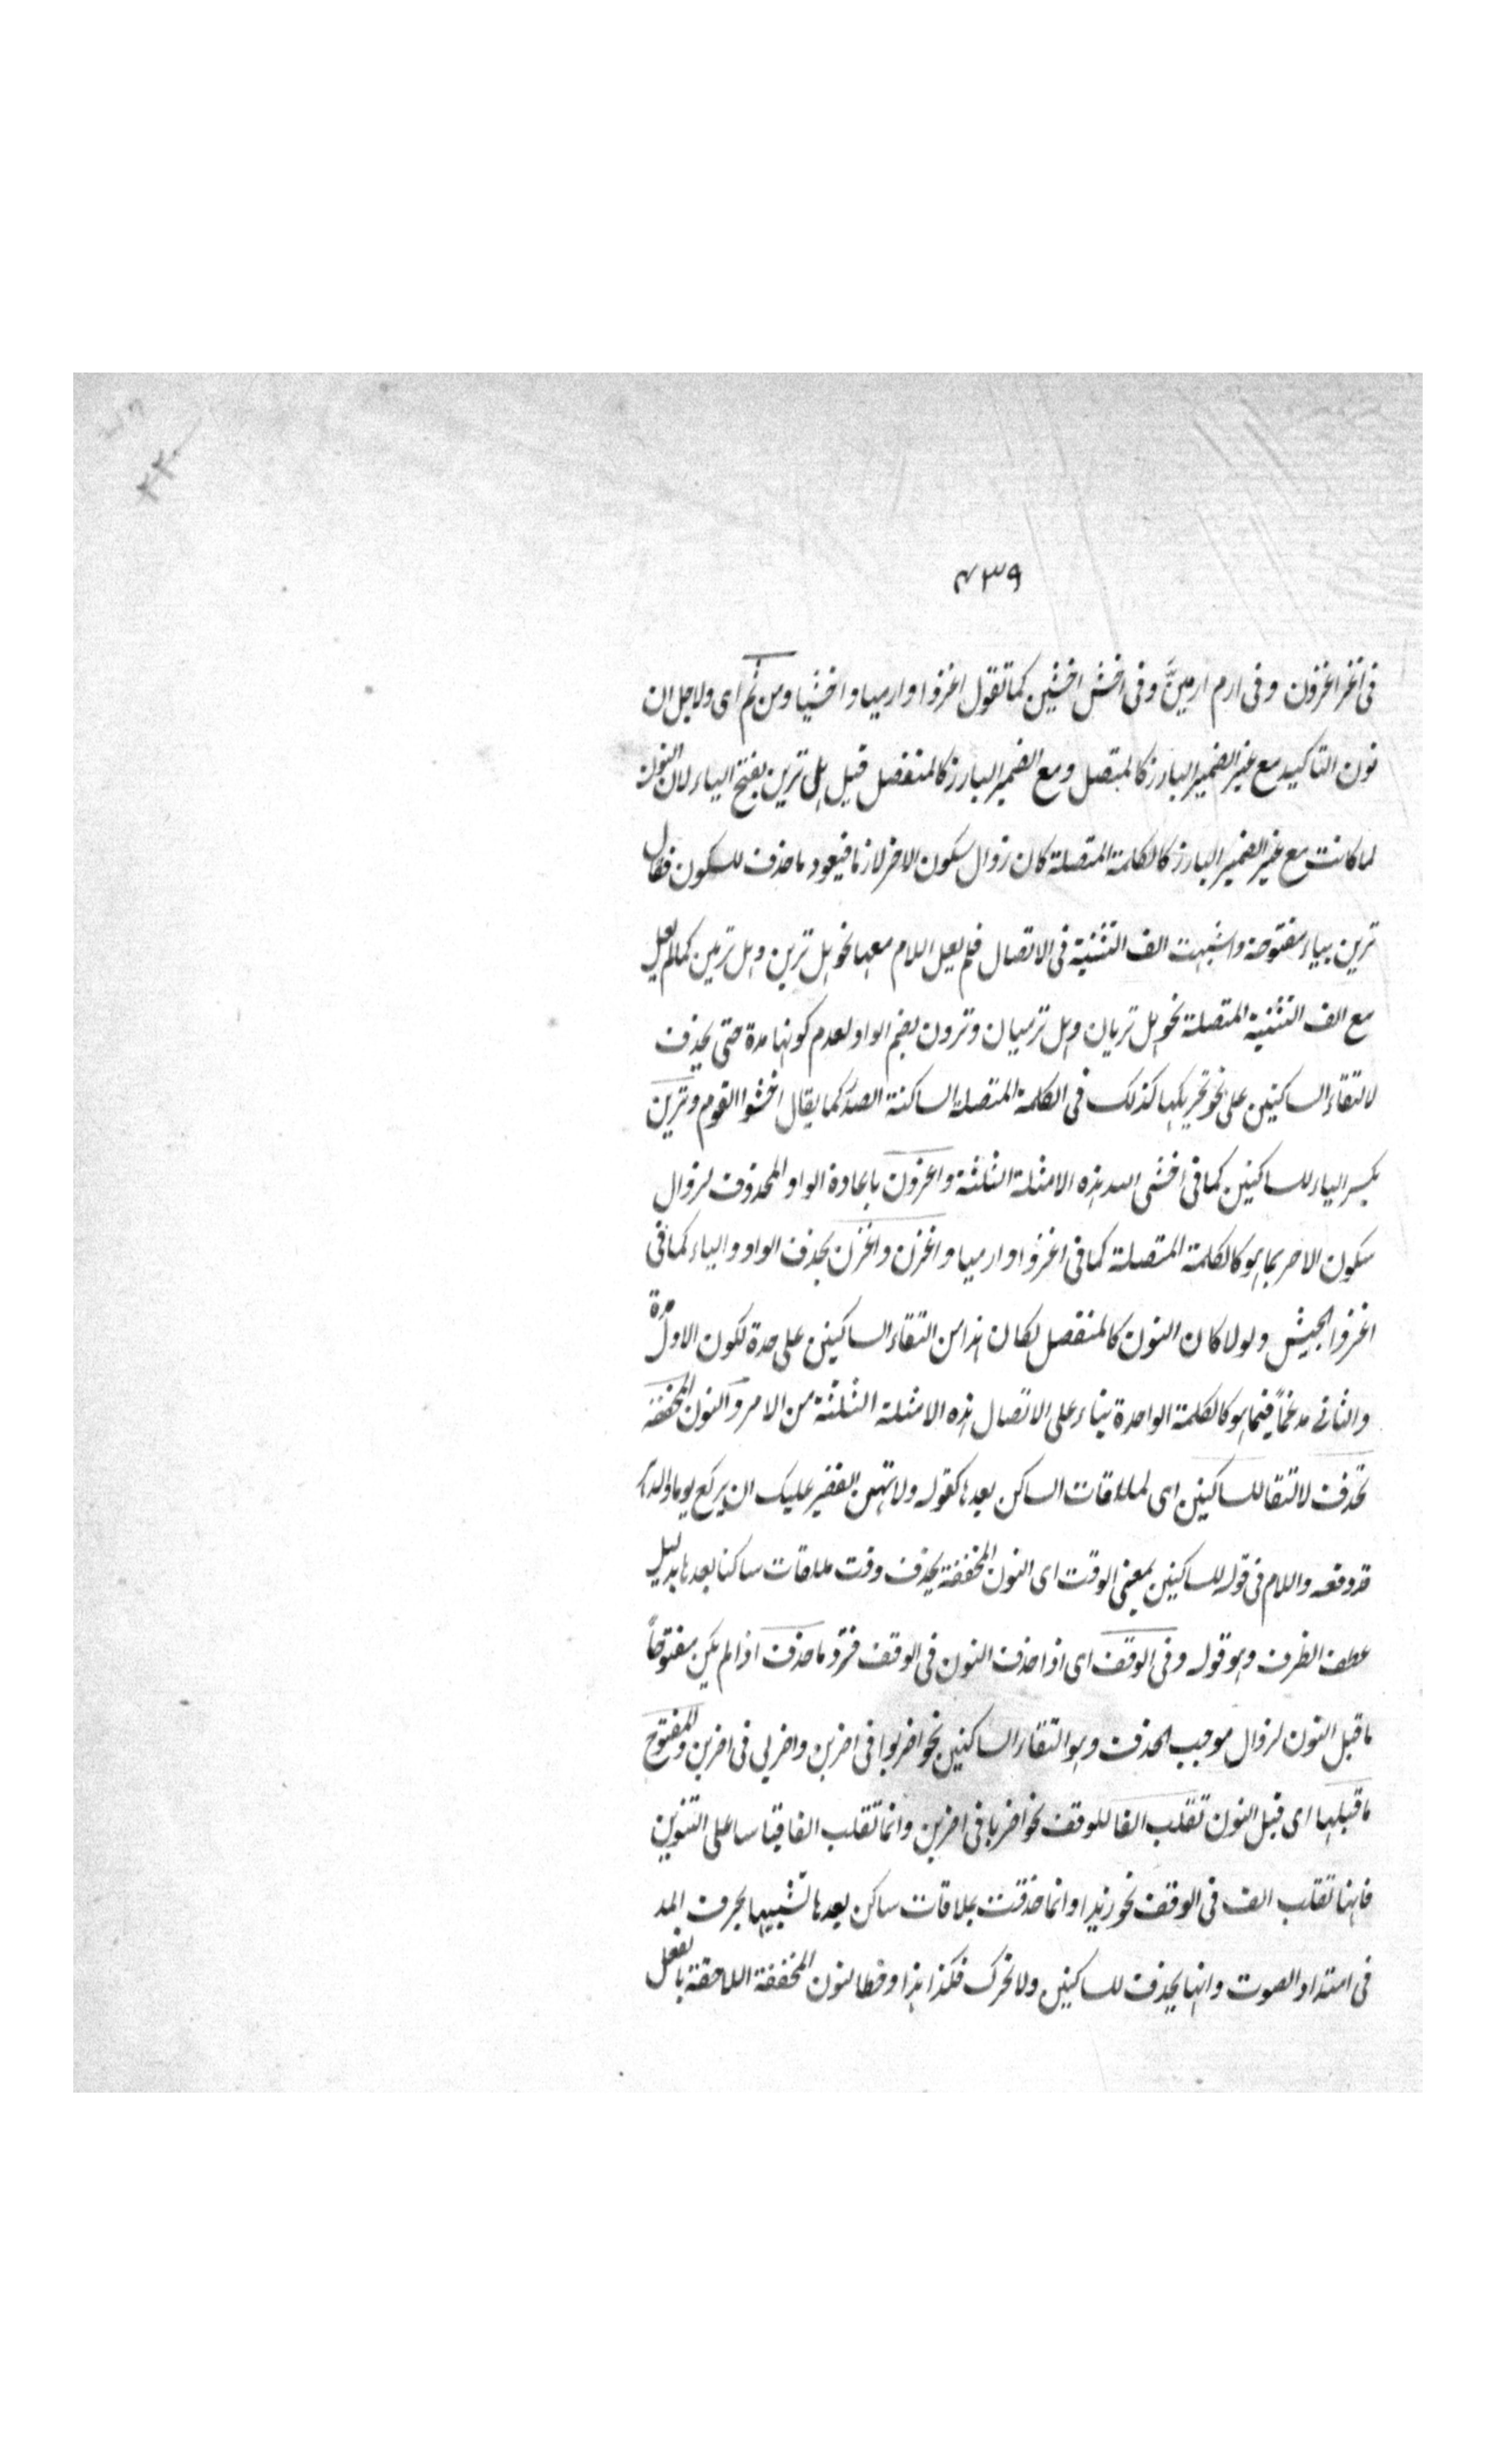 ٤٣٩
فى اغز اغزون وفى ارم ارمينَّ وفى اخش اخشين كما تقول اغزوا وارميا واخشيا ومن ثم اى ولاجل ان
نون التاكيد مع غير الضمير البارز كالمتصل ومع الضمير البارز كالمنفصل قيل هل ترين بفتح الياء لان النون
لما كانت مع غير الضمير البارز كالكلمة المتصلة كان زوال سكون الاخر لازما فيعود ما حذف للسكون فقال
ترين بياء مفتوحة واشبهت الف التثنية فى الاتصال فلم يعل اللام معها نحو هل ترين وهل ترمين كما لم يعل
مع الف التثنية المتصلة نحو هل تريان وهل ترميان وترون بضم الواو لعدم كونها مدة حتى يحذف
لالتقاء الساكنين على نحو تحريكها كذلك فى الكلمة المتصلة الساكنة الصدر كما يقال اخشوا القوم وترين
بكسر الياء للساكنين كما فى اخشى الله هذه الامثلة الثلثة واغزون باعادة الواو المحذوف لزوال
سكون الاخر بما هو كالكلمة المتصلة كما فى اغزوا وارميا واغزن واغزن بحذف الواو والياء كما فى
اغزوا الجيش ولولا كان النون كالمنفصل لكان هذا من التقاء الساكنين على حدة لكون الاول مدة
والثانى مدغماً فيما هو كالكلمة الواحدة بناء على الاتصال هذه الامثلة الثلثة من الامر والنون المخففة
تحذف لالتقا للساكنين اى لملاقات الساكن بعدها كقوله ولا تهين الفقير عليك ان يركع يوما والدهر
قد رفعه واللام فى قوله للساكنين بمعنى الوقت اى النون المخففة يحذف وقت ملاقات ساكنا بعدها بدليل
عطف الظرف وهو قوله وفى الوقف اى اذا حذف النون فى الوقف فترد ما حذف اذا لم يكن مفتوحاً
ما قبل النون لزوال موجب الحذف وهو التقاء الساكنين نحو اضربوا فى اضربن واضربى فى اضربن والمفتوح
ما قبلها اى قبل النون تقلب الفا للوقف نحو اضربا فى اضربن وانما تقلب الفا قياسا على التنوين
فانها تقلب الف فى الوقف نحو زيدا وانما حذفت بملاقات ساكن بعدها تشبيها بحرف المد
فى امتداد الصوت وانها يحذف للساكنين ولا تحرك فكذا هذا وحطا لنون المخففة اللاحقة بالفعل